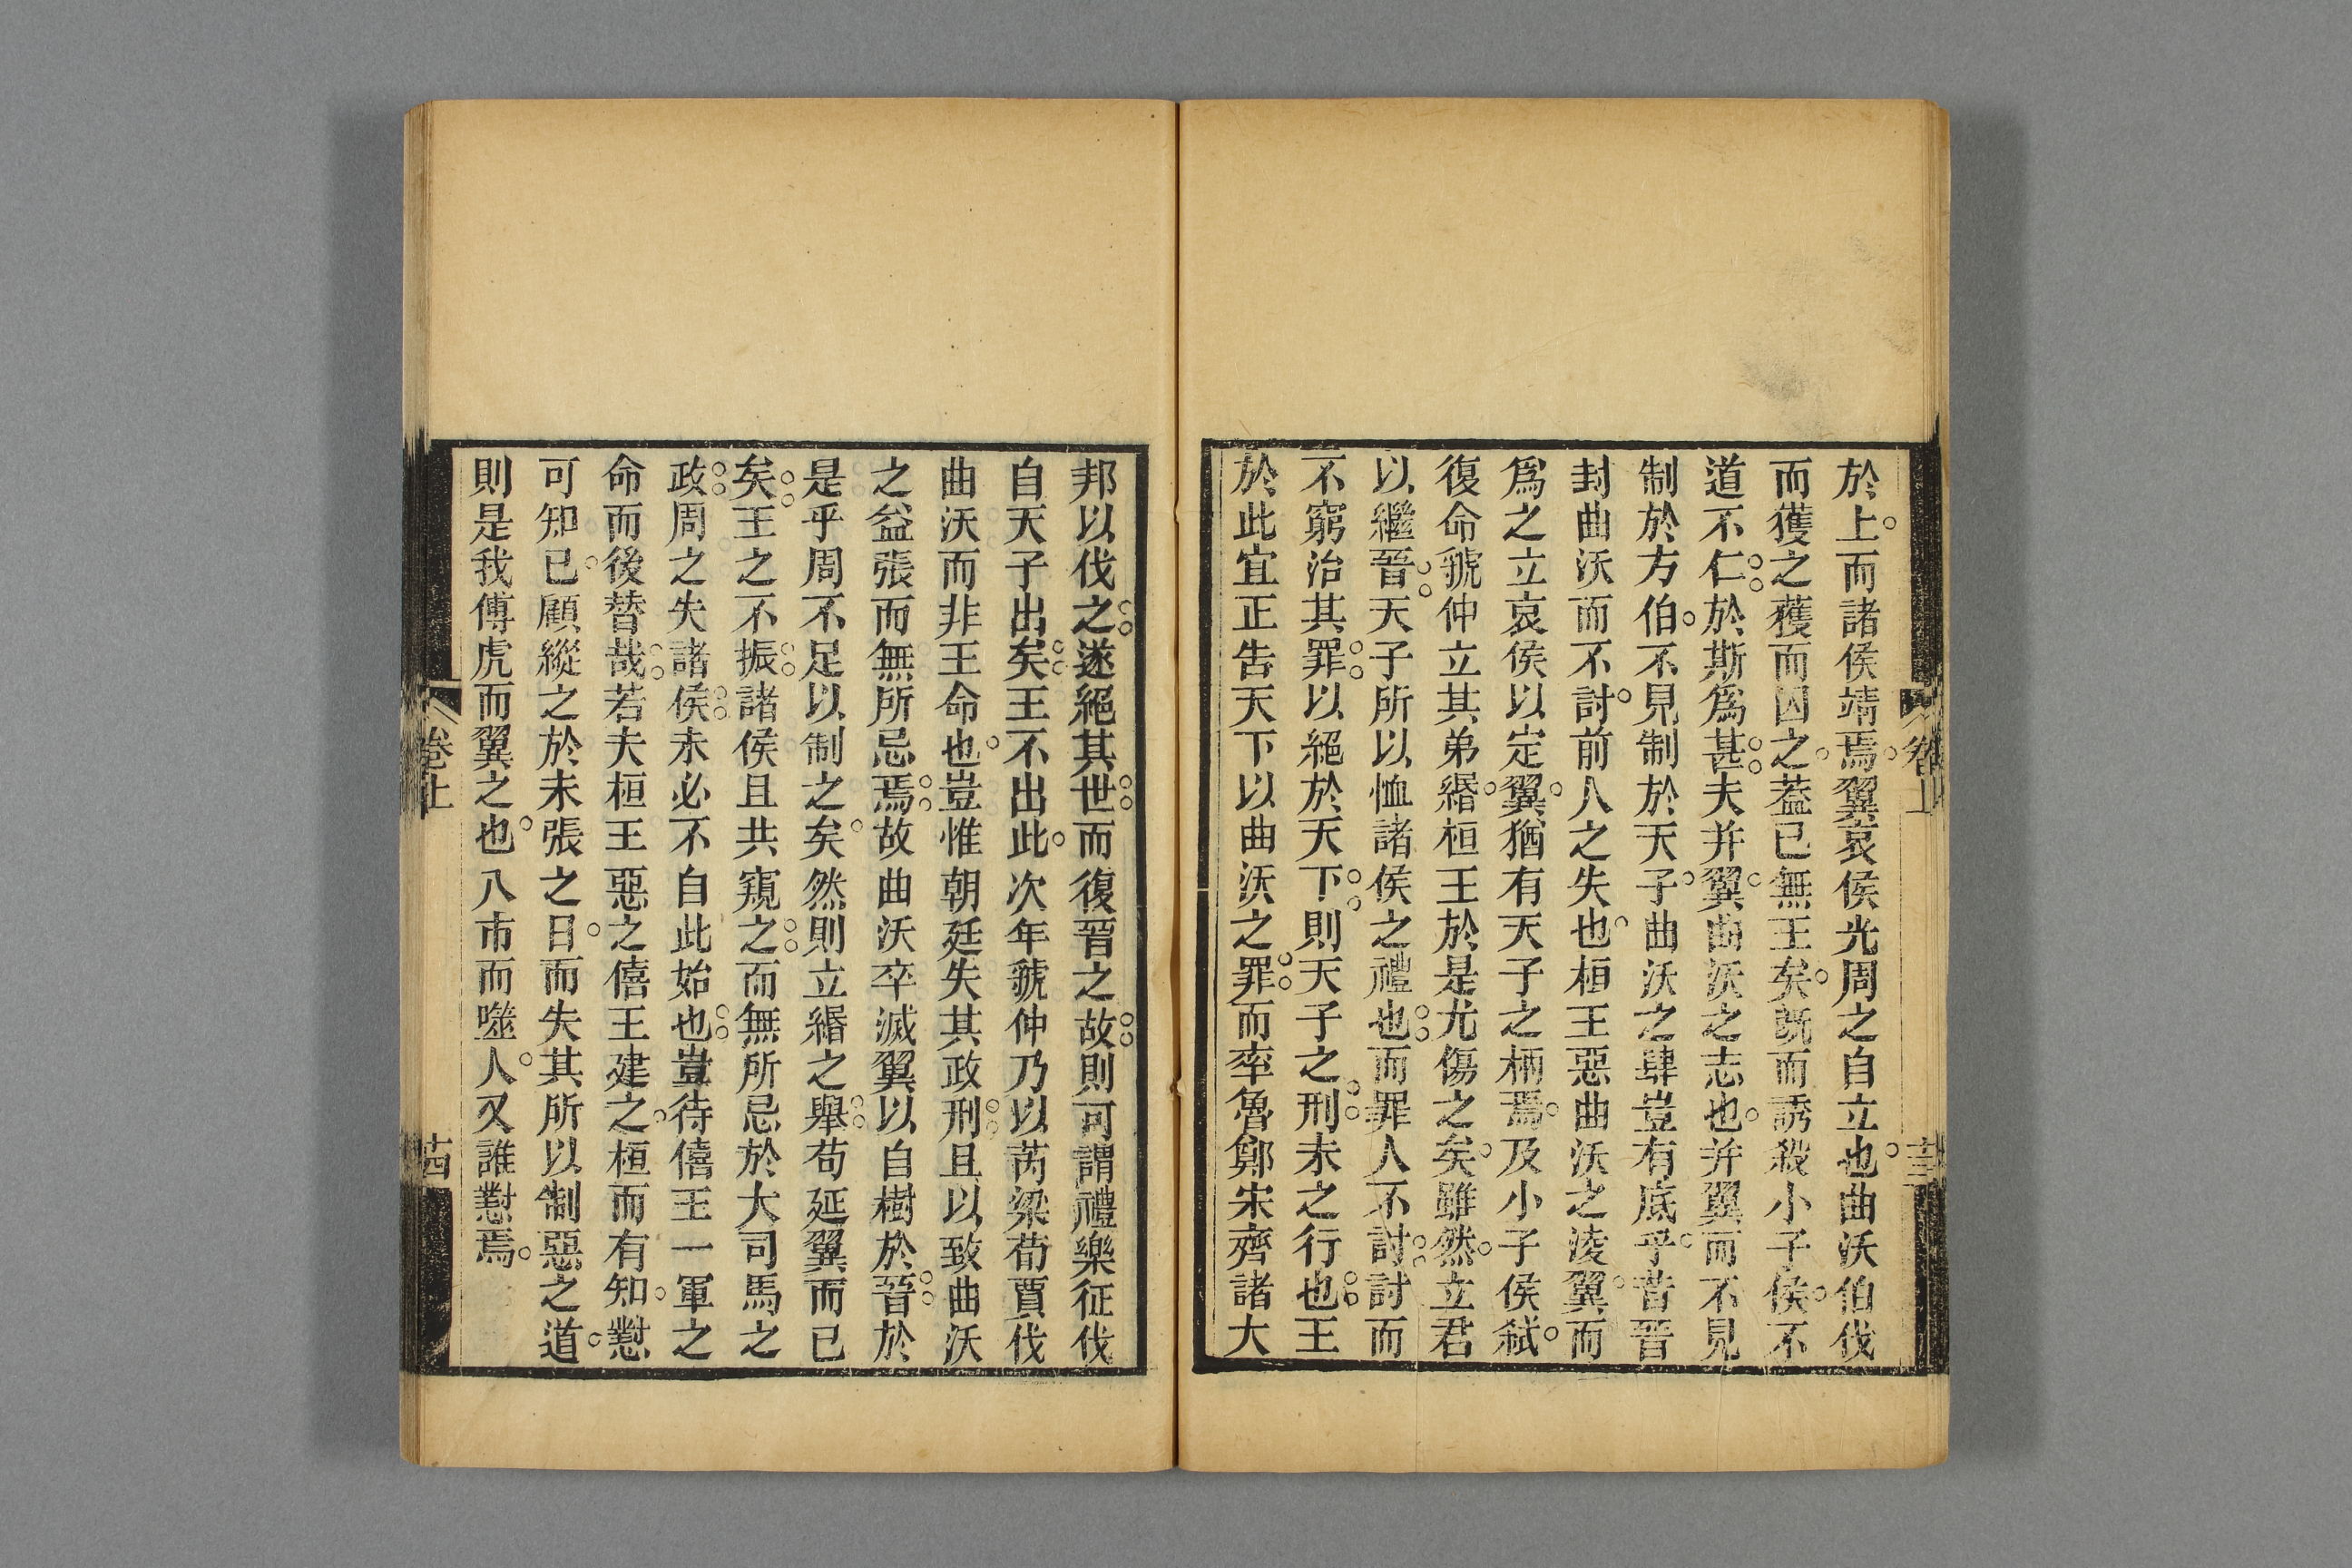 於上而諸侯靖焉翼哀侯光周之自立也曲沃伯伐
而獲之獲而囚之葢已無王矣旣而誘殺小子侯不
道不仁於斯爲甚夫并翼曲沃之志也并翼而不見
制於方伯不見制於天子曲沃之肆豈有底乎昔晉
封曲沃而不討前人之失也桓王惡曲沃之淩翼而
爲之立哀侯以定翼猶有天子之柄焉及小子侯弑
復命虢仲立其弟緡桓王於是尤傷之矣雖然立君
以繼晉天子所以恤諸侯之禮也而罪人不討討而
不窮治其罪以絕於天下則天子之刑未之行也王
於此宜正告天下以曲沃之罪而率魯鄭宋齊諸大
卷上
十三
邦以伐之遂絕其世而復晉之故則可謂禮樂征伐
自天子出矣王不出此次年虢仲乃以芮梁荀賈伐
曲沃而非王命也豈惟朝廷失其政刑且以致曲沃
之益張而無所忌焉故曲沃卒滅翼以自樹於晉於
是乎周不足以制之矣然則立緡之舉苟延翼而已
矣王之不振諸侯且共窺之而無所忌於大司馬之
政周之失諸侯未必不自此始也豈待僖王一軍之
命而後替哉若夫桓王惡之僖王建之桓而有知懟
可知已顧縱之於未張之日而失其所以制惡之道
則是我傅虎而翼之也入市而噬人又誰懟焉
卷上
十四